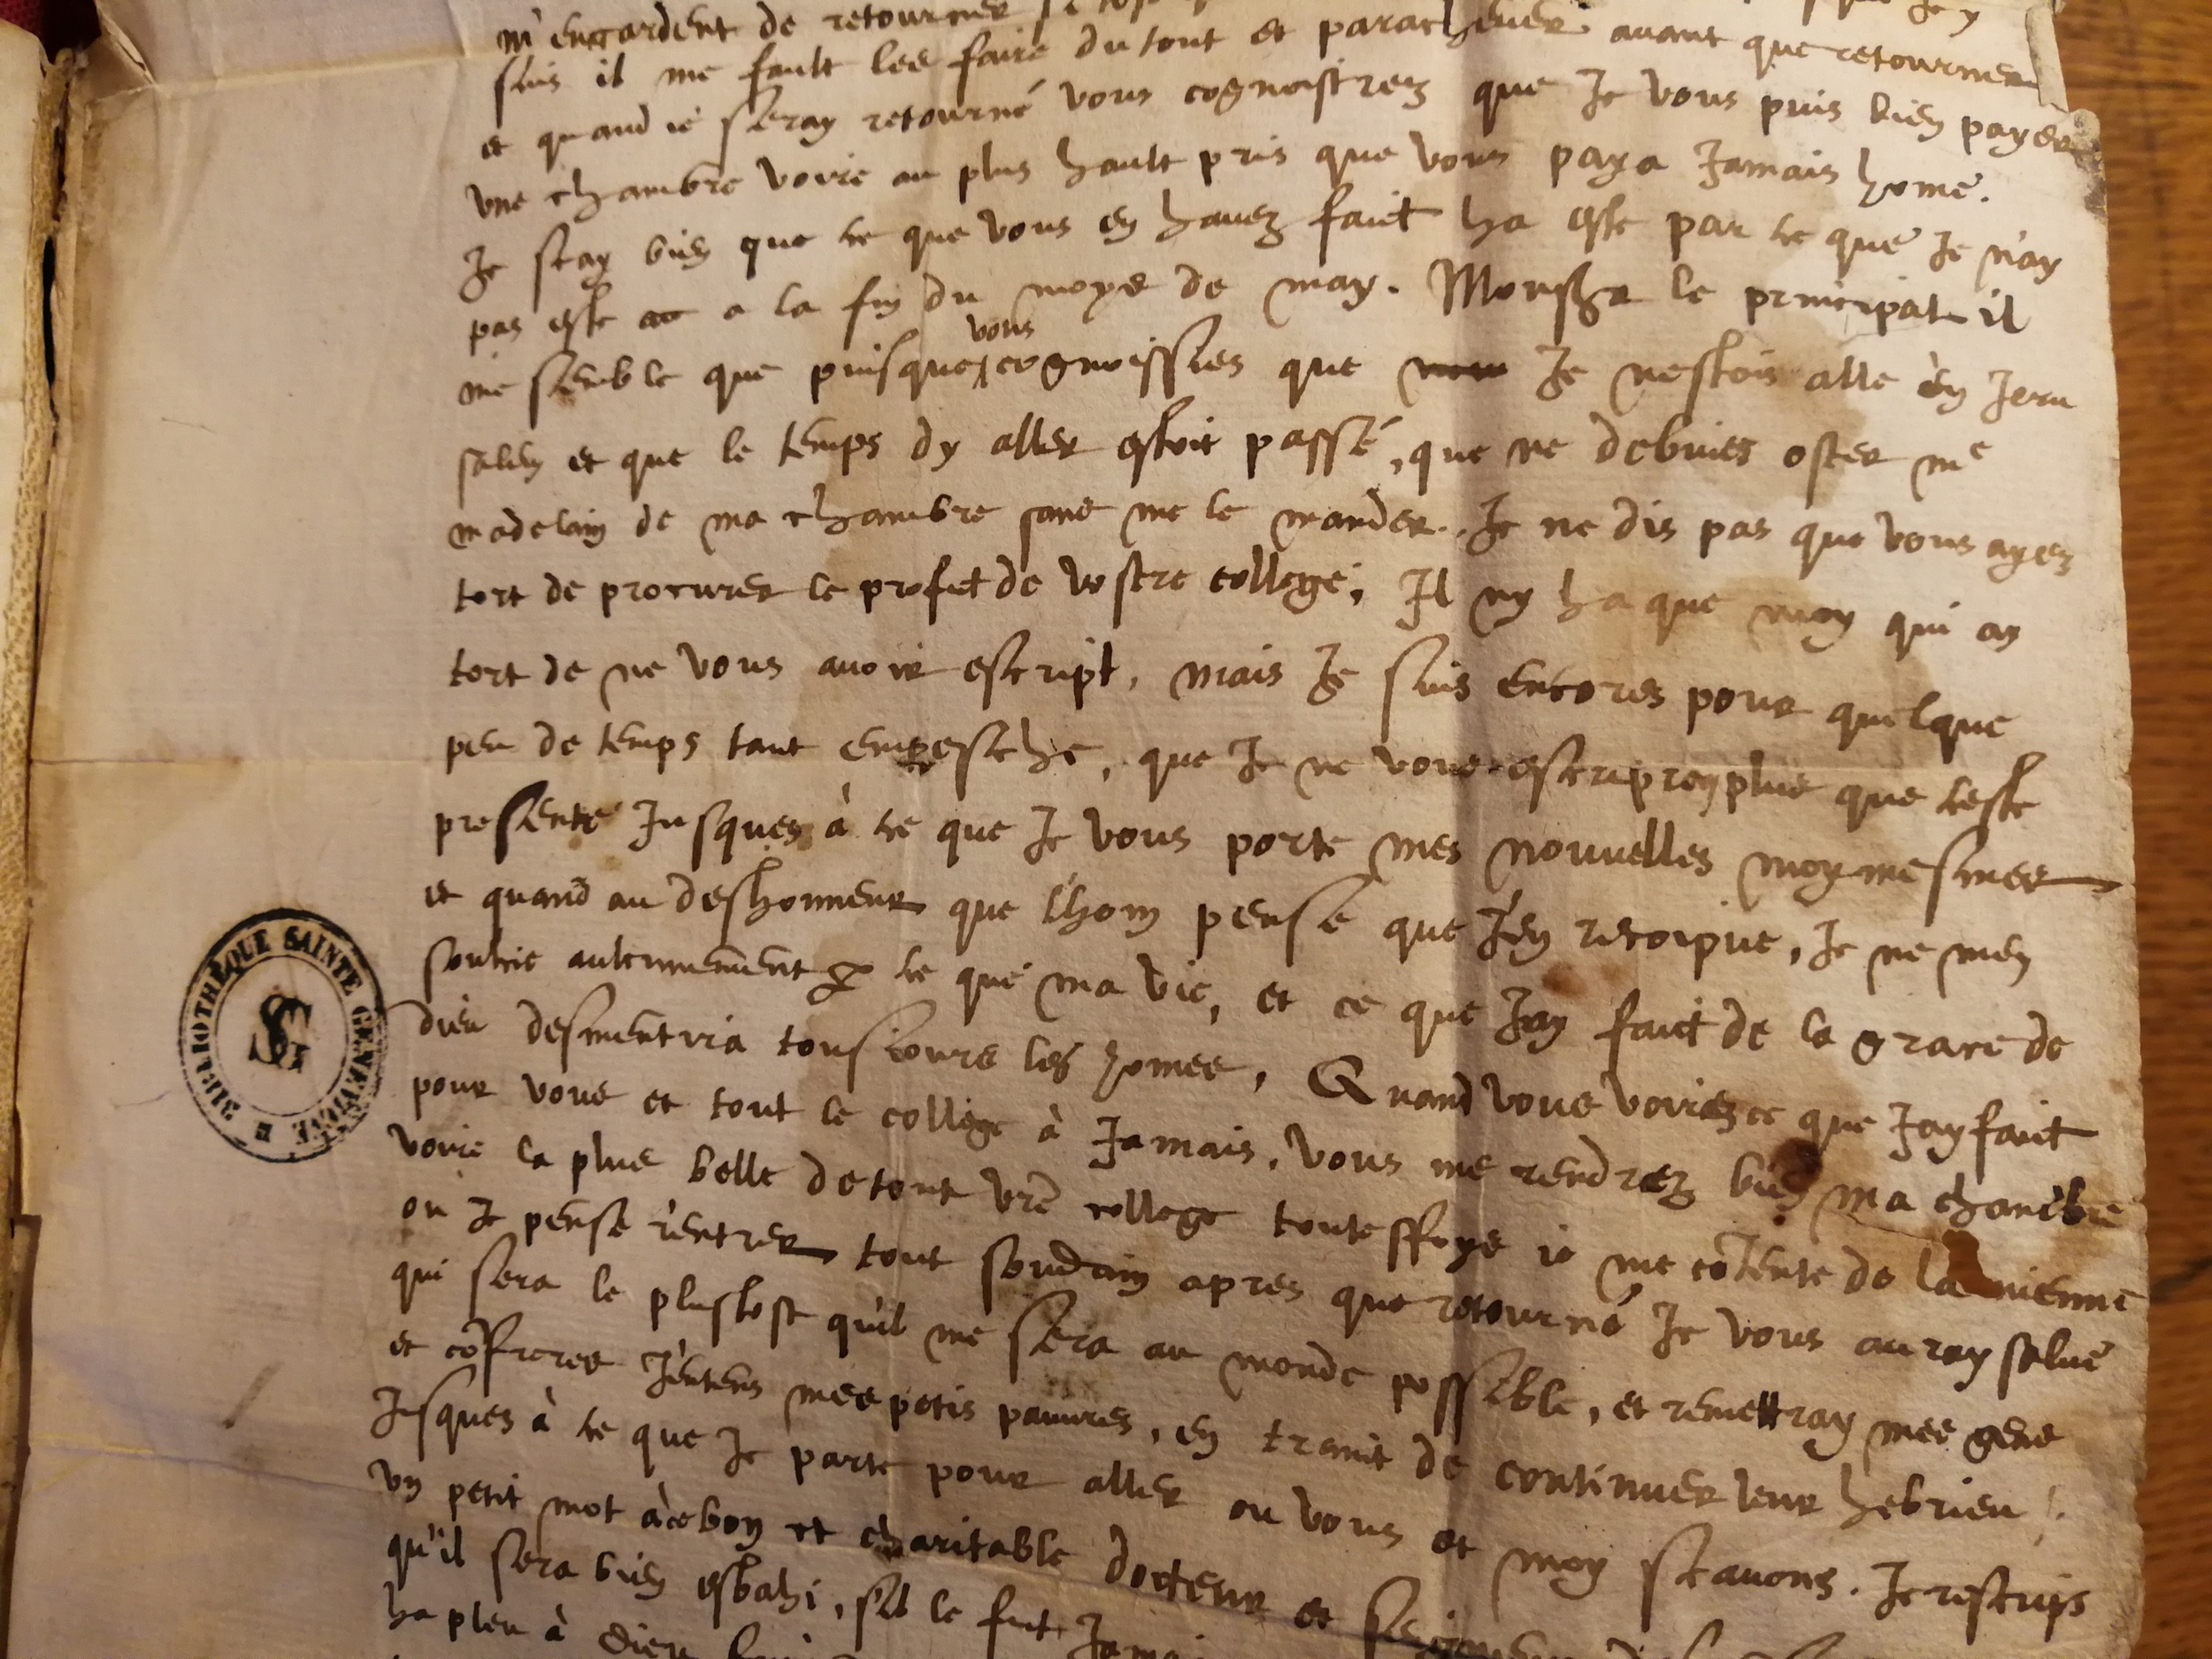 m'engardent de retourner
suis il me fault les faire du tout et parachever avant que retourner
et quand ie seray retourné vous cognoistrez que Je vous puis bien payer
une chambre voire au plus hault pris que vous paya Jamais home.
Je scay bien que ce que vous en havez faict ha este par ce que Je n'ay
pas este a la fin du moys de may. Monsgr le principal il
me semble que puisque vous cognoissies que Je nestois alle en Jeru
salem et que le temps dy aller estoit passé, que ne debvies oster me
madelain de ma chambre sans me le mander. Je ne dis pas que vous ayes
tort de procurer le profict de vostre college; Il ny ha que moy qui ay
tort de ne vous avoir escript, mais Je suis encores pour quelque
peu de temps tant empesche, que Je ne vous escripray plus que ceste
presente Jusques à ce que Je vous porte mes nouvelles moymesmes
et quand au deshonneur que l'hom pense que J'en recoipve, Je ne men
soulcie aulcunement p ce que ma vie, et ce que Jay faict de la grace de
dieu desmentira tousiours les homes, Quand vous voires ce que Jay faict
pour vous et tout le college à Jamais, vous me rendrez bien ma chambre
voire la plus belle de tout vre college toutesffoys ie me cōtente de la mienne
ou Je pense rentrer tout soudain apres que retourné Je vous auray salué
qui sera le plustost quil me sera au monde possible, et remettray mes gens
et cōfreres J'entens mes petis pauvres, en train de continuer leur hebrieu
Jusques à ce que Je parte pour aller ou vous et moy scavons. Je rescrips
un petit mot à ce bon et charitable docteur et
qu'il sera bien esbahi, sil le fut Jamais
ha pleu à Dieu
BIBLIOTHÈQUE SAINTE GENEVIEVE
SG